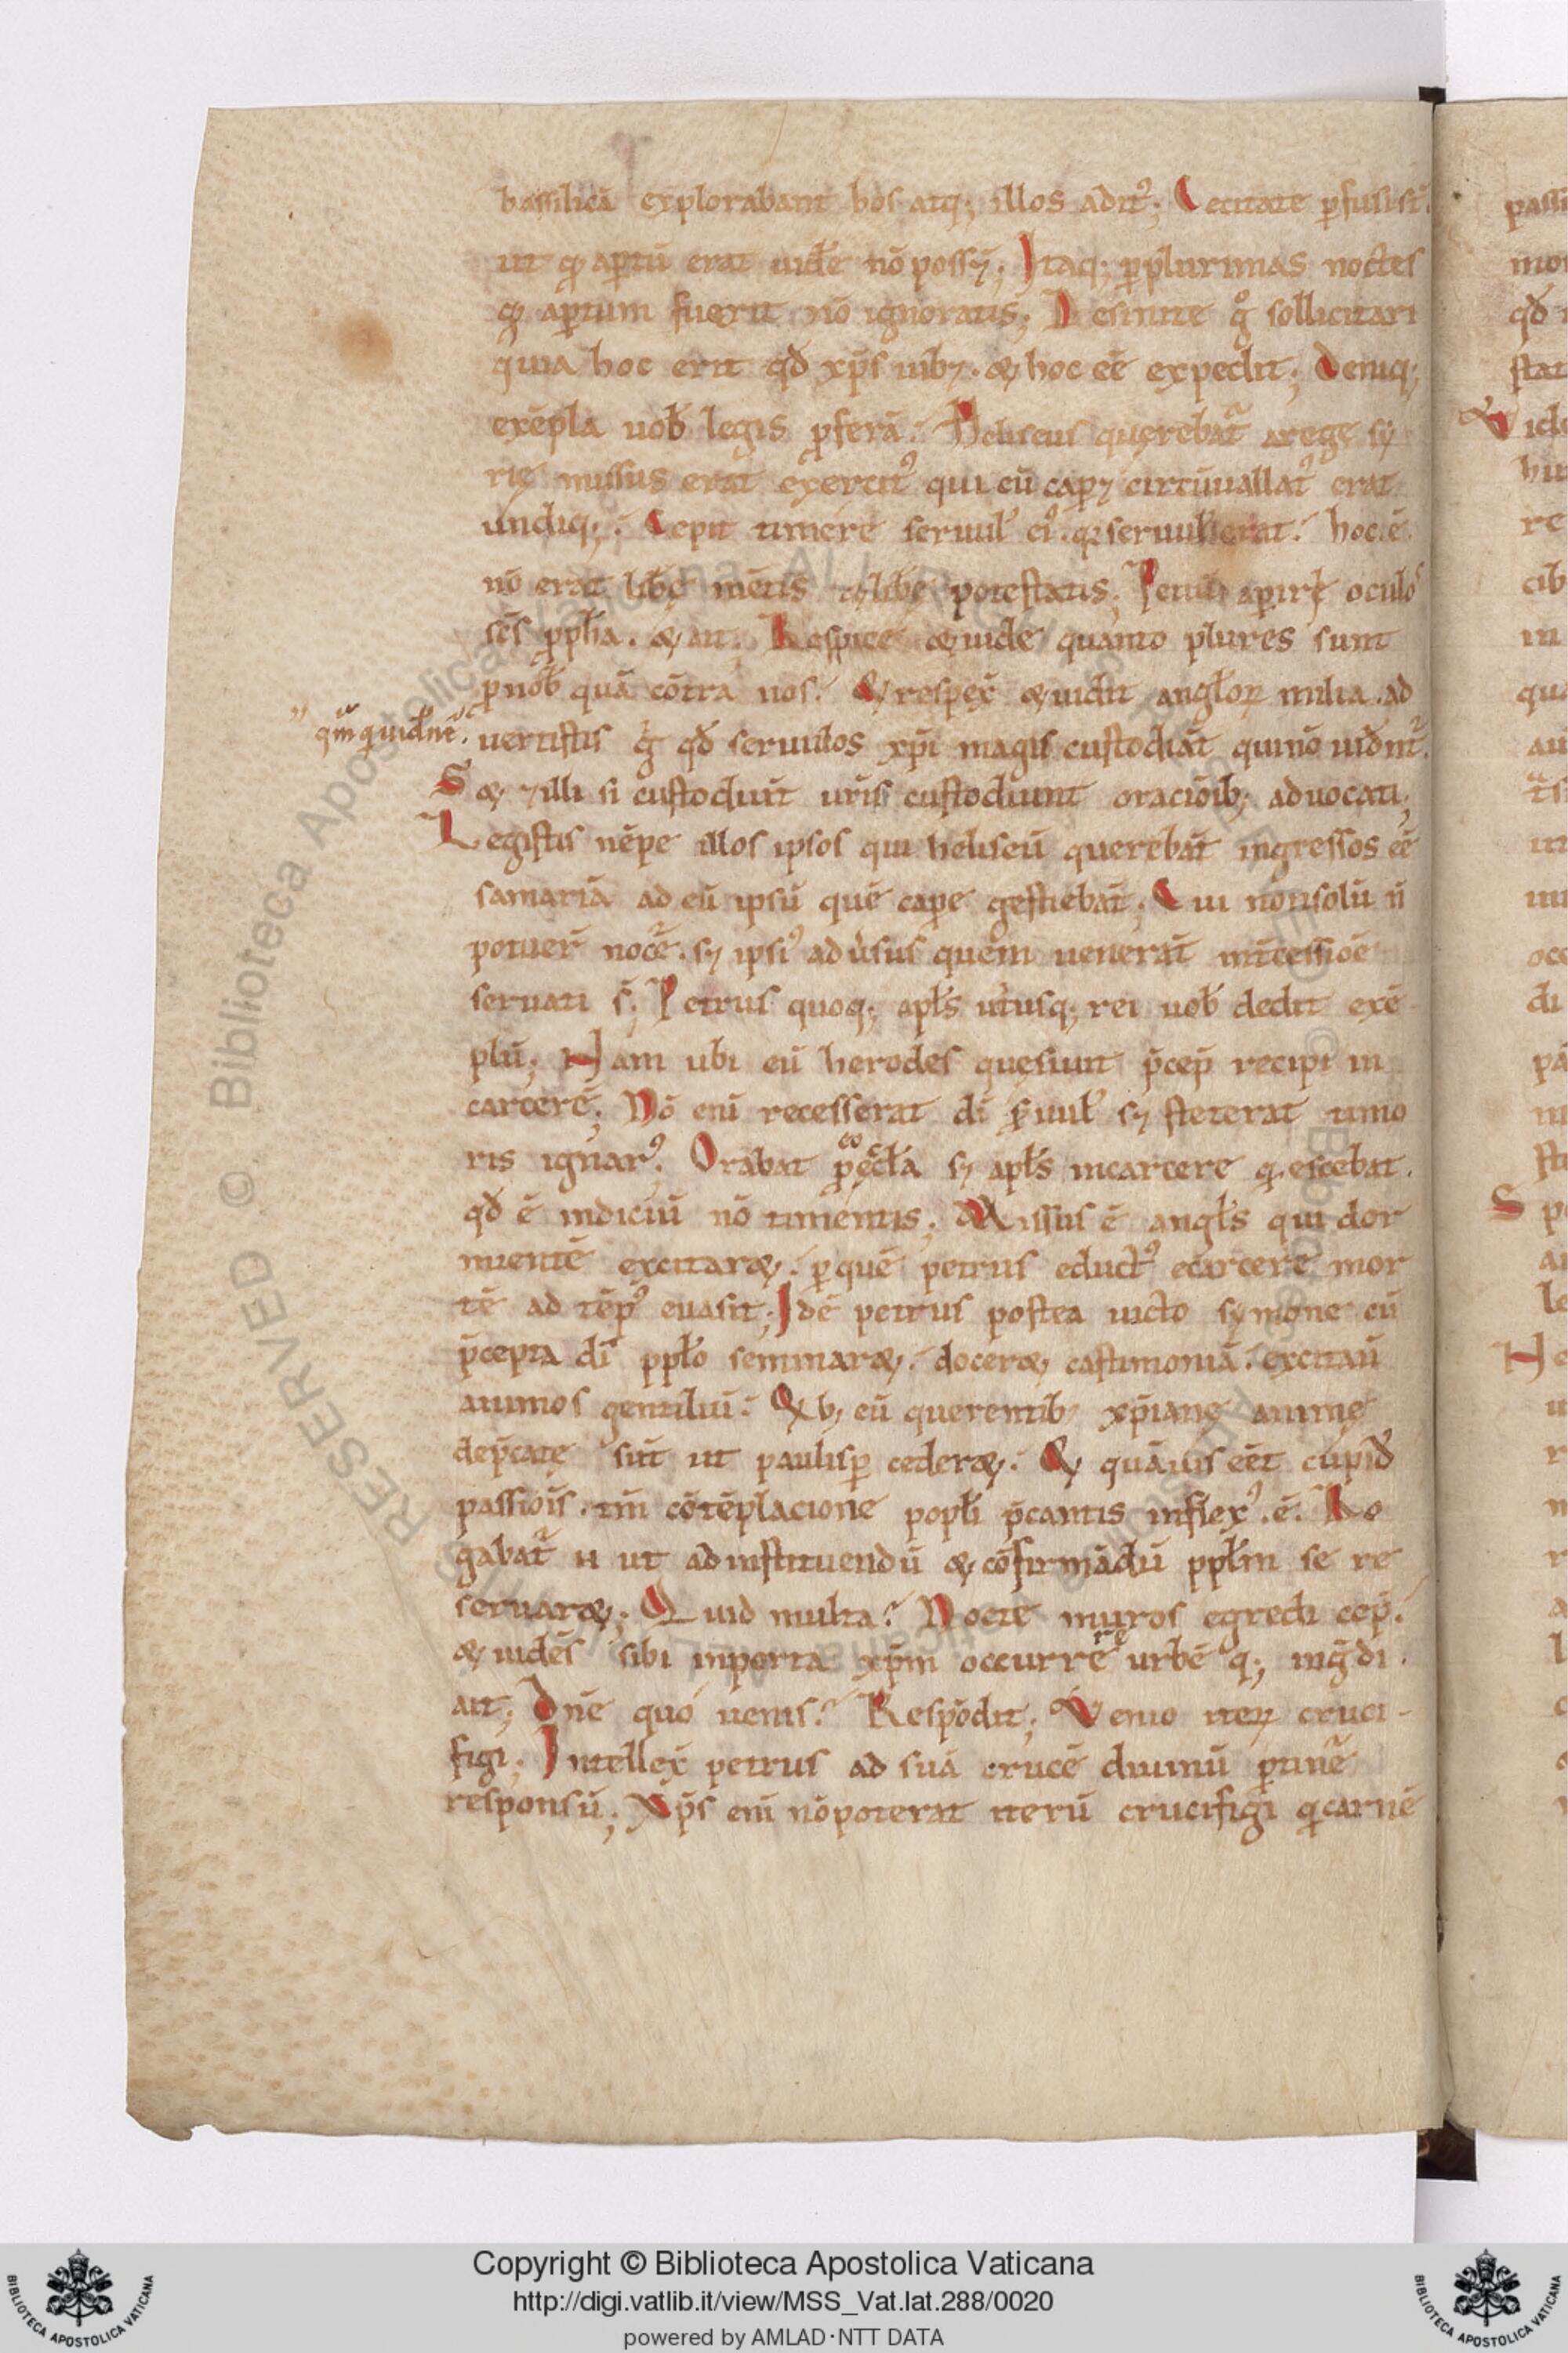 bassilicā explorabant hos atq; illos adit᾽; Cecitate ꝑfusi st̄.
ut qͥ aꝑtū erat uidẽ nō possꝫ; Itaq; ꝑplurimas noctes
qͥ aꝑtum fuerit nō ignoratis; Desinite gͦ sollicitari
quia hoc erit qđ xp̄s iubꝫ. & hoc eē expedit; Deniq;
exēpla uoƀ legis ꝓferā. Heliseus querebat᷑ arege sẏ
rię missus erat exercit᾽ qui eū caꝑꝫ circūuallat᾽ erat
undiq;. Cepit timere seruul᾽ ei᾽. qꝛ seruul᾽ erat. hoc.ē.
nō erat liƀę mētis ⁊ liƀę potestatis; Petiit aꝑirį oculos
scs̄ ꝓph̄a. & ait. Respice & uide quanto plures sunt
ꝓnoƀ quā cōtra nos. & respex̄ & uidit angl̄oꝝ milia. ad
qm̄ quid nē.
uertistis gͦ qđ seruulos xp̄i magis custodiāt qui nō uiđnt᷑.
S & ⁊ illi si custodiūt ur̄is custodiunt oraciōib; aduocati;
Legistis nēpe illos ipsos qui heliseū querebāt ingressos eē
samariā ad eū ipsū quē caꝑe gestiebāt; Qui nonsolū n̄
potuer̄ nocē. sꝫ ipsi᾽ aduẜsus quem uenerāt int̄cessiōe
seruati s̄; Petrus quoq; apl̄s ut̾usq; rei uoƀ dedit exē
plū; Nam ubi eū herodes quęsiuit p̄cep̄ recipi in
carcerē; Nō eni᷑ recesserat dī ẜuul᾽ sꝫ steterat timo
ris ignar᾽. Orabat ꝓ eo ęccl̄a sꝫ apl̄s incarcere qͥescebat.
qđ ē indiciū nō timentis; Missus ē angl̄s qui dor
mientē excitar&. ꝑquē petrus educt᾽ ecarcere mor
tē ad tēp᾽ euasit; Idē petrus postea uicto sẏmone cū
p̄cepta dī ppl̄o seminar&. docer& castimoniā. excitau̅
animos gentiliū. Qͥb; eū querentib; xp̄iane anime
dep̄cate sūt ut paulisꝑ ceder&. & quāuis eēt cupiđ
passiōis. tm̄ cōtēplacione popl̄i p̄cantis inflex᾽.ē. Ro
gabat᷑ n ut ad instituendū & cōfirmādū ppl̄m se re
seruar&; Quid multa? Nocte muros egredi cep̄.
& uidēs sibi inporta xp̄m occurrere urbē q; ing̾di.
ait; Dn̄e quo uenis? Respōdit; Venio iteꝝ cruci-
figi; Intellex̄ petrus ad suā crucē diuinū ꝑtinē
responsū; Xp̄s eni᷑ nōpoterat iterū crucifigi qͥcarnē
Copyright © Biblioteca Apostolica Vaticana
http://digi.vatlib.it/view/MSS_Vat.lat.288/0020
powered by AMLAD·NTT DATA